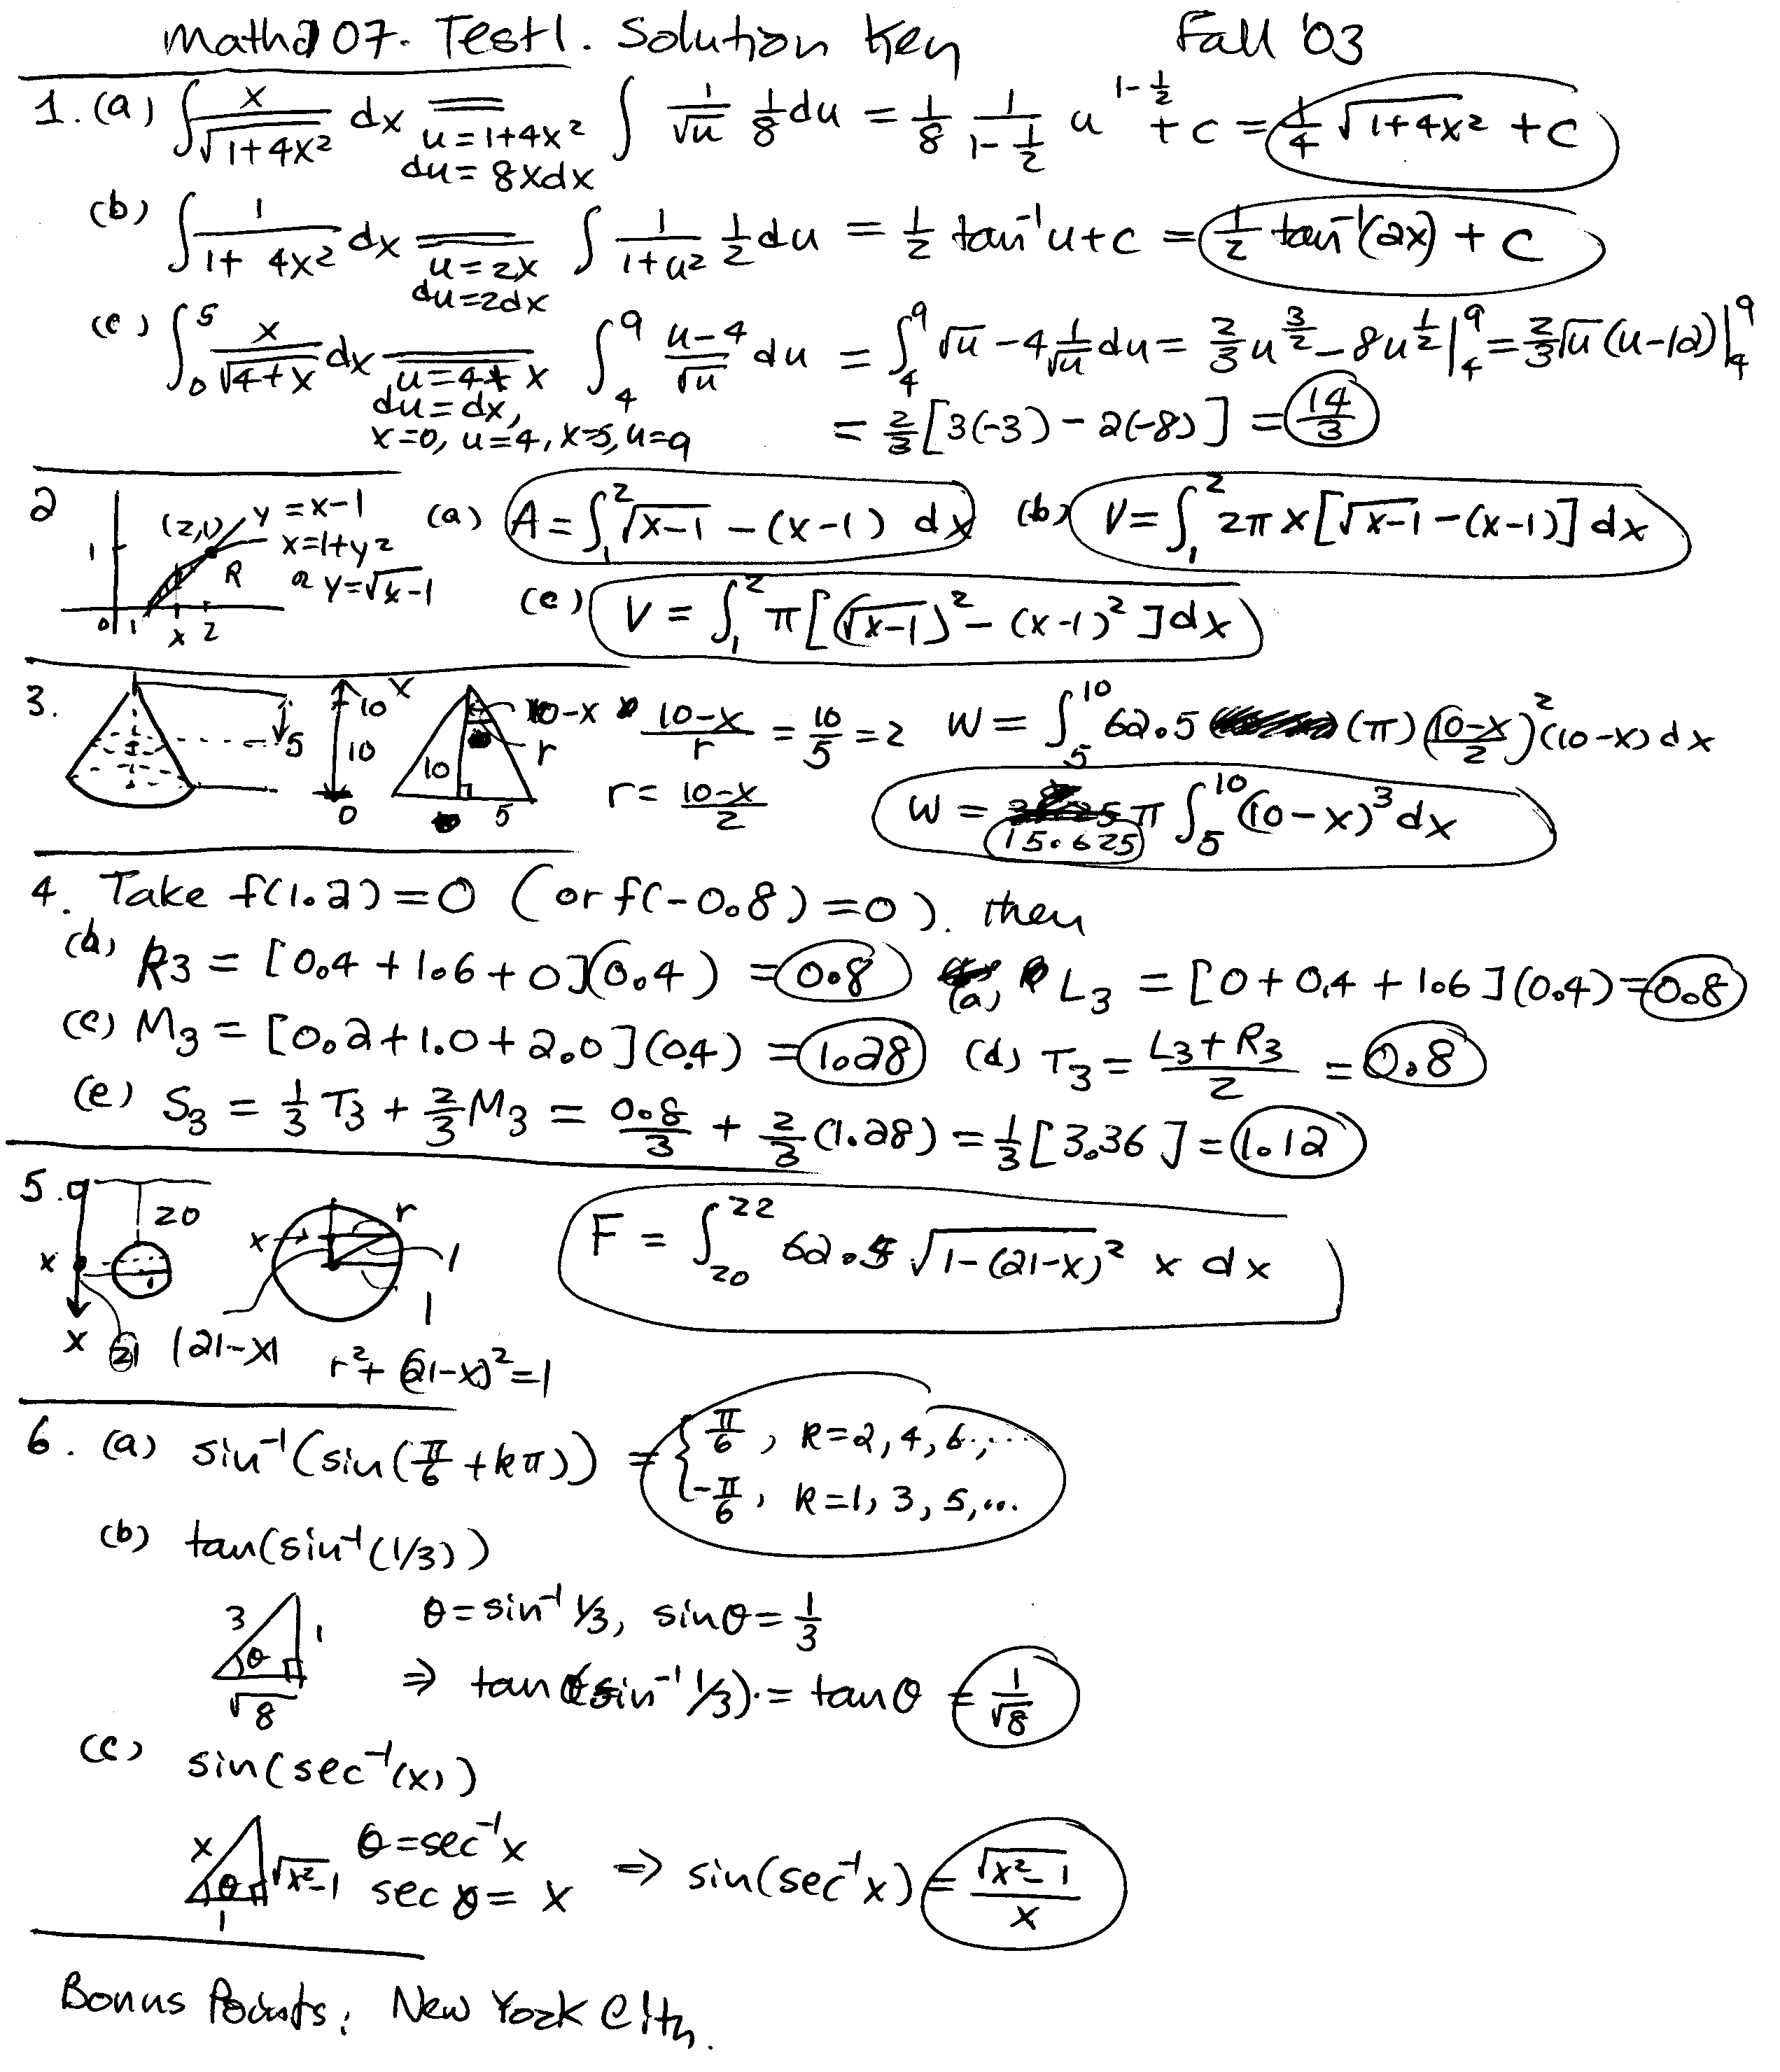 Math207. Test1. Solution Key Fall '03
1. (a) ∫ x/√(1+4x²) dx = ∫ 1/√u 1/8 du = 1/8 1/(1-1/2) u^(1-1/2) + c = 1/4 √(1+4x²) + c
u = 1+4x²
du = 8xdx
(b) ∫ 1/(1+4x²) dx = ∫ 1/(1+u²) 1/2 du = 1/2 tan⁻¹u + c = 1/2 tan⁻¹(2x) + c
u = 2x
du = 2dx
(c) ∫₀⁵ x/√(4+x) dx = ∫₄⁹ (u-4)/√u du = ∫₄⁹ √u - 4 1/√u du = 2/3 u^(3/2) - 8u^(1/2) |₄⁹ = 2/3 √u (u-12) |₄⁹
u = 4+x
du = dx,
x=0, u=4, x=5, u=9 = 2/3 [3(-3) - 2(-8)] = 14/3
2 (a) A = ∫₁² √(x-1) - (x-1) dx (b) V = ∫₁² 2πx[√(x-1) - (x-1)] dx
(2,1) y = x-1
1 x=1+y²
R or y=√(x-1)
0 1 x 2
(c) V = ∫₁² π[(√(x-1))² - (x-1)²] dx
3. 5 10 x 10 0 10-x r 10 5 (10-x)/r = 10/5 = 2 W = ∫₅¹⁰ 62.5 (π) ((10-x)/2)² (10-x) dx
r = (10-x)/2 W = 15.625 π ∫₅¹⁰ (10-x)³ dx
4. Take f(1.2) = 0 (or f(-0.8) = 0). then
(b) R₃ = [0.4 + 1.6 + 0](0.4) = 0.8 (a) L₃ = [0 + 0.4 + 1.6](0.4) = 0.8
(c) M₃ = [0.2 + 1.0 + 2.0](0.4) = 1.28 (d) T₃ = (L₃ + R₃)/2 = 0.8
(e) S₃ = 1/3 T₃ + 2/3 M₃ = 0.8/3 + 2/3 (1.28) = 1/3 [3.36] = 1.12
5. 0 20 x r 1 1 F = ∫₂₀²² 62.5 √(1-(21-x)²) x dx
x
x 21 |21-x| r² + (21-x)² = 1
6. (a) sin⁻¹(sin(π/6 + kπ)) = { π/6, k=2, 4, 6, ...
-π/6, k=1, 3, 5, ...
(b) tan(sin⁻¹(1/3))
3 1 θ √8 θ = sin⁻¹ 1/3, sinθ = 1/3
⇒ tan(sin⁻¹ 1/3) = tanθ = 1/√8
(c) sin(sec⁻¹(x))
x θ √(x²-1) 1 θ = sec⁻¹x
sec θ = x ⇒ sin(sec⁻¹x) = √(x²-1)/x
Bonus Points: New York City.